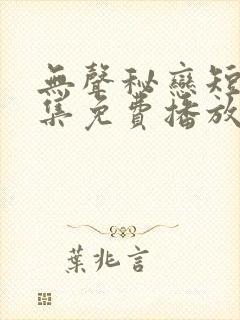 無聲秘戀短
集免費播放
葉兆言